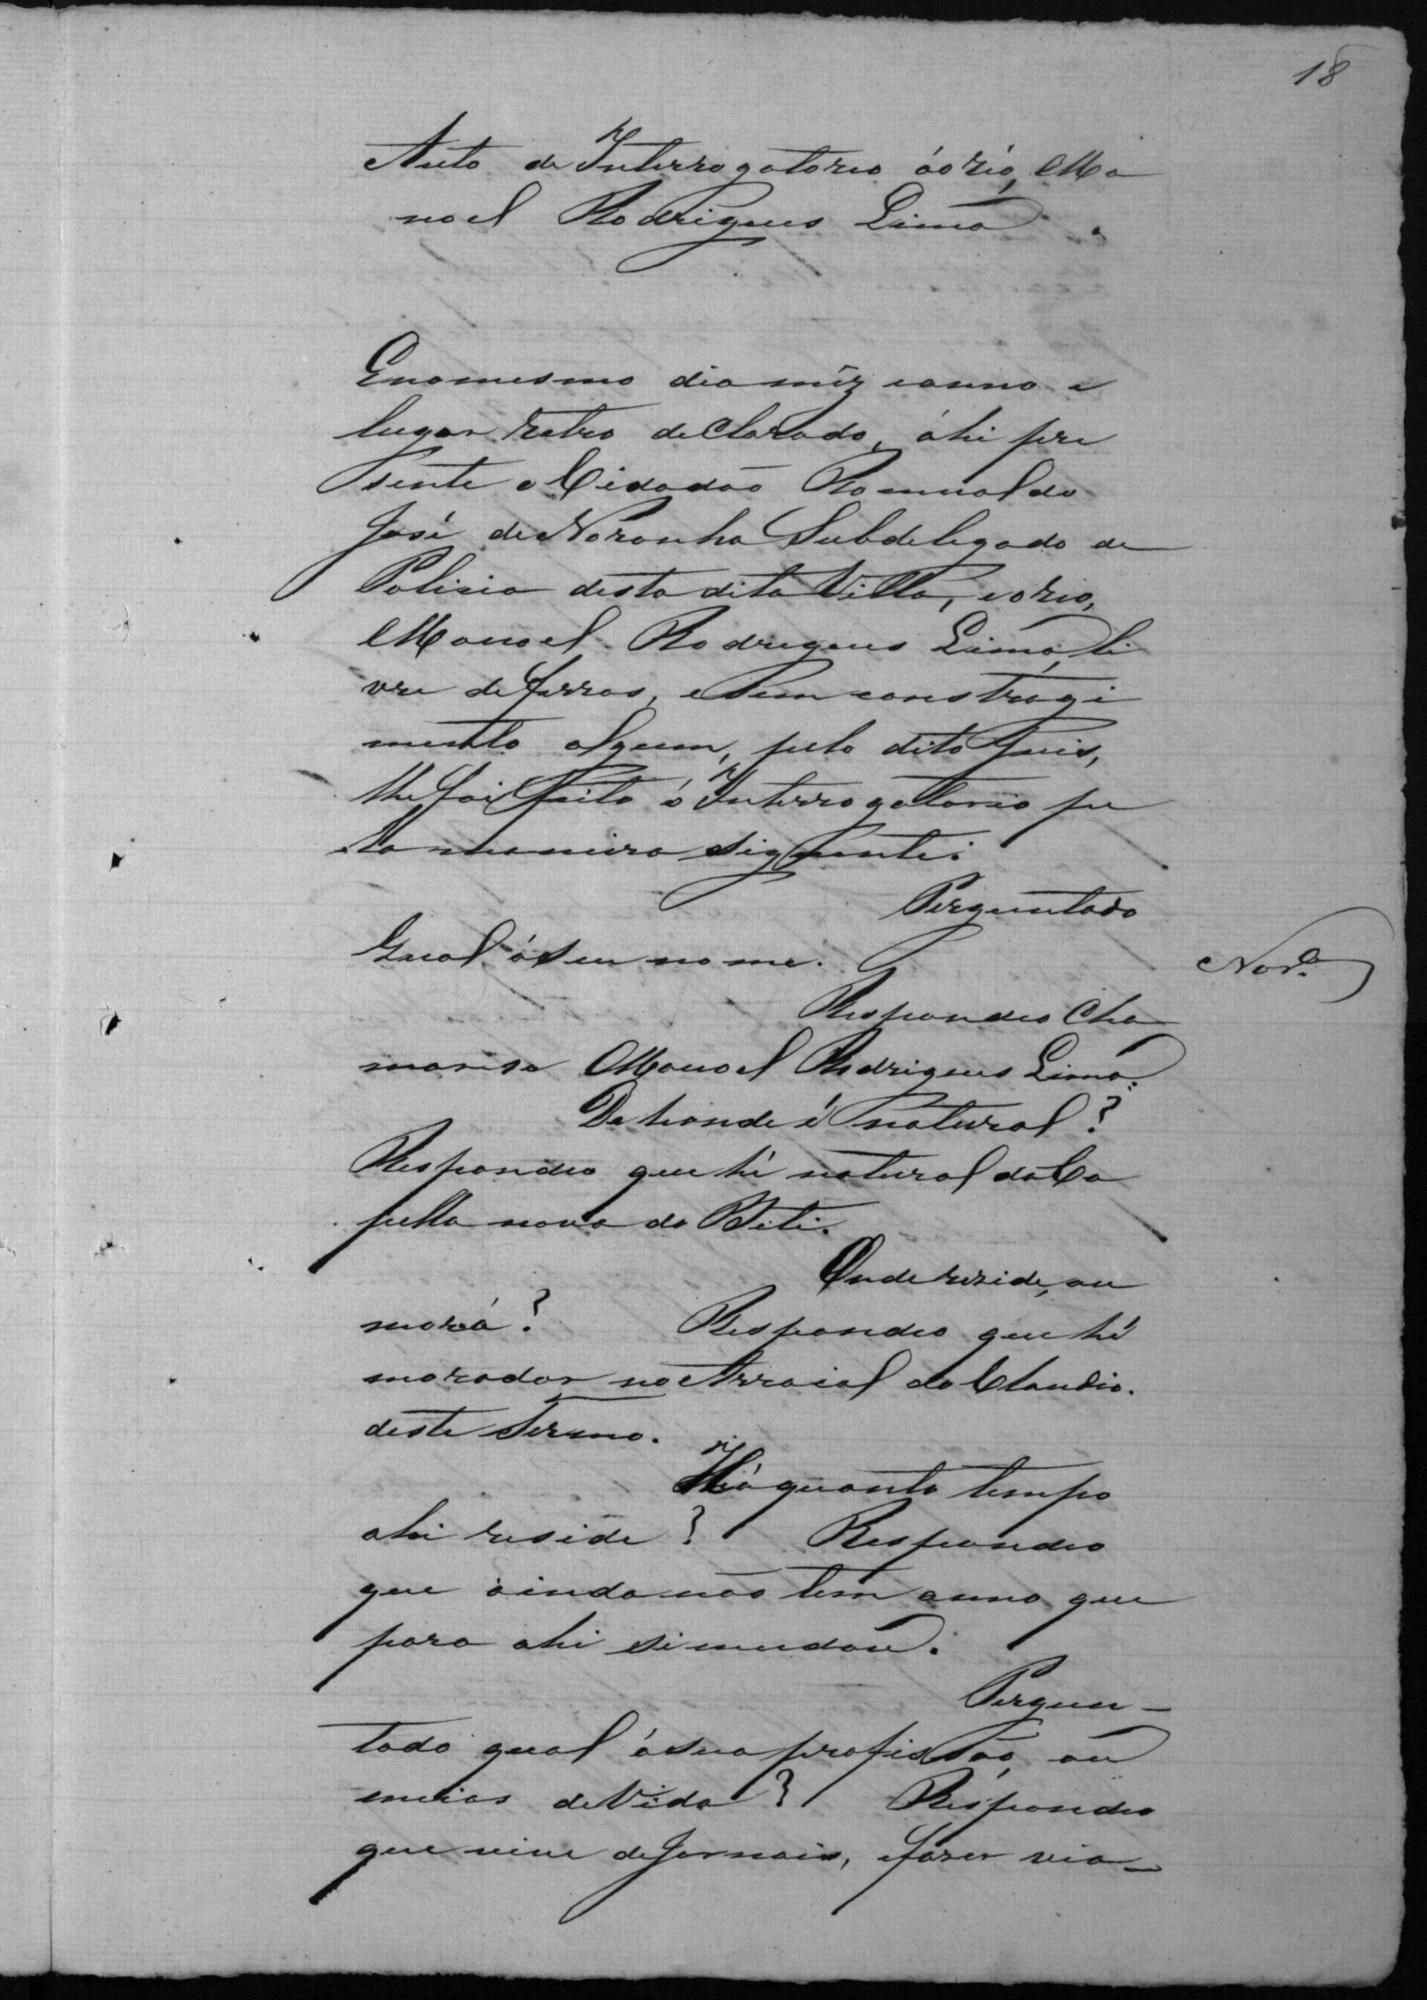 18
Auto de Interrogatorio ao réo, Ma
noel Rodrigues Lima.
E no mesmo dia mêz e anno e
lugar retro declarado, áhi pre
sente o Cidadão Romualdo
José de Noronha Subdelegado de
Policia desta dita Villa, e o reo,
Manoel Rodrigues Lima, li
vre de ferros, e sem constragi
mento algum, pelo dito Juis,
lhe foi feito o Interrogatorio pe
la maneira siguinte:
Perguntado
Qual ó seu nome.
Nor.ª
Respondeo cha
marisa Manoel Rodrigues Lima:
De honde é natural?
Respondeo que hé natural da Ca
pella nova do
Onde reside, ou
mora?    Respondeo que hé
morador no Arraial do Claudio.
deste Termo.
Há quanto tempo
ahi reside?    Respondeo
que ainda não tem anno que
para ahi si mudou.
Pergun-
tado qual ó sua profissão, ou
meios de Vida?    Respondeo
que vive de Jornais, e fazer via-